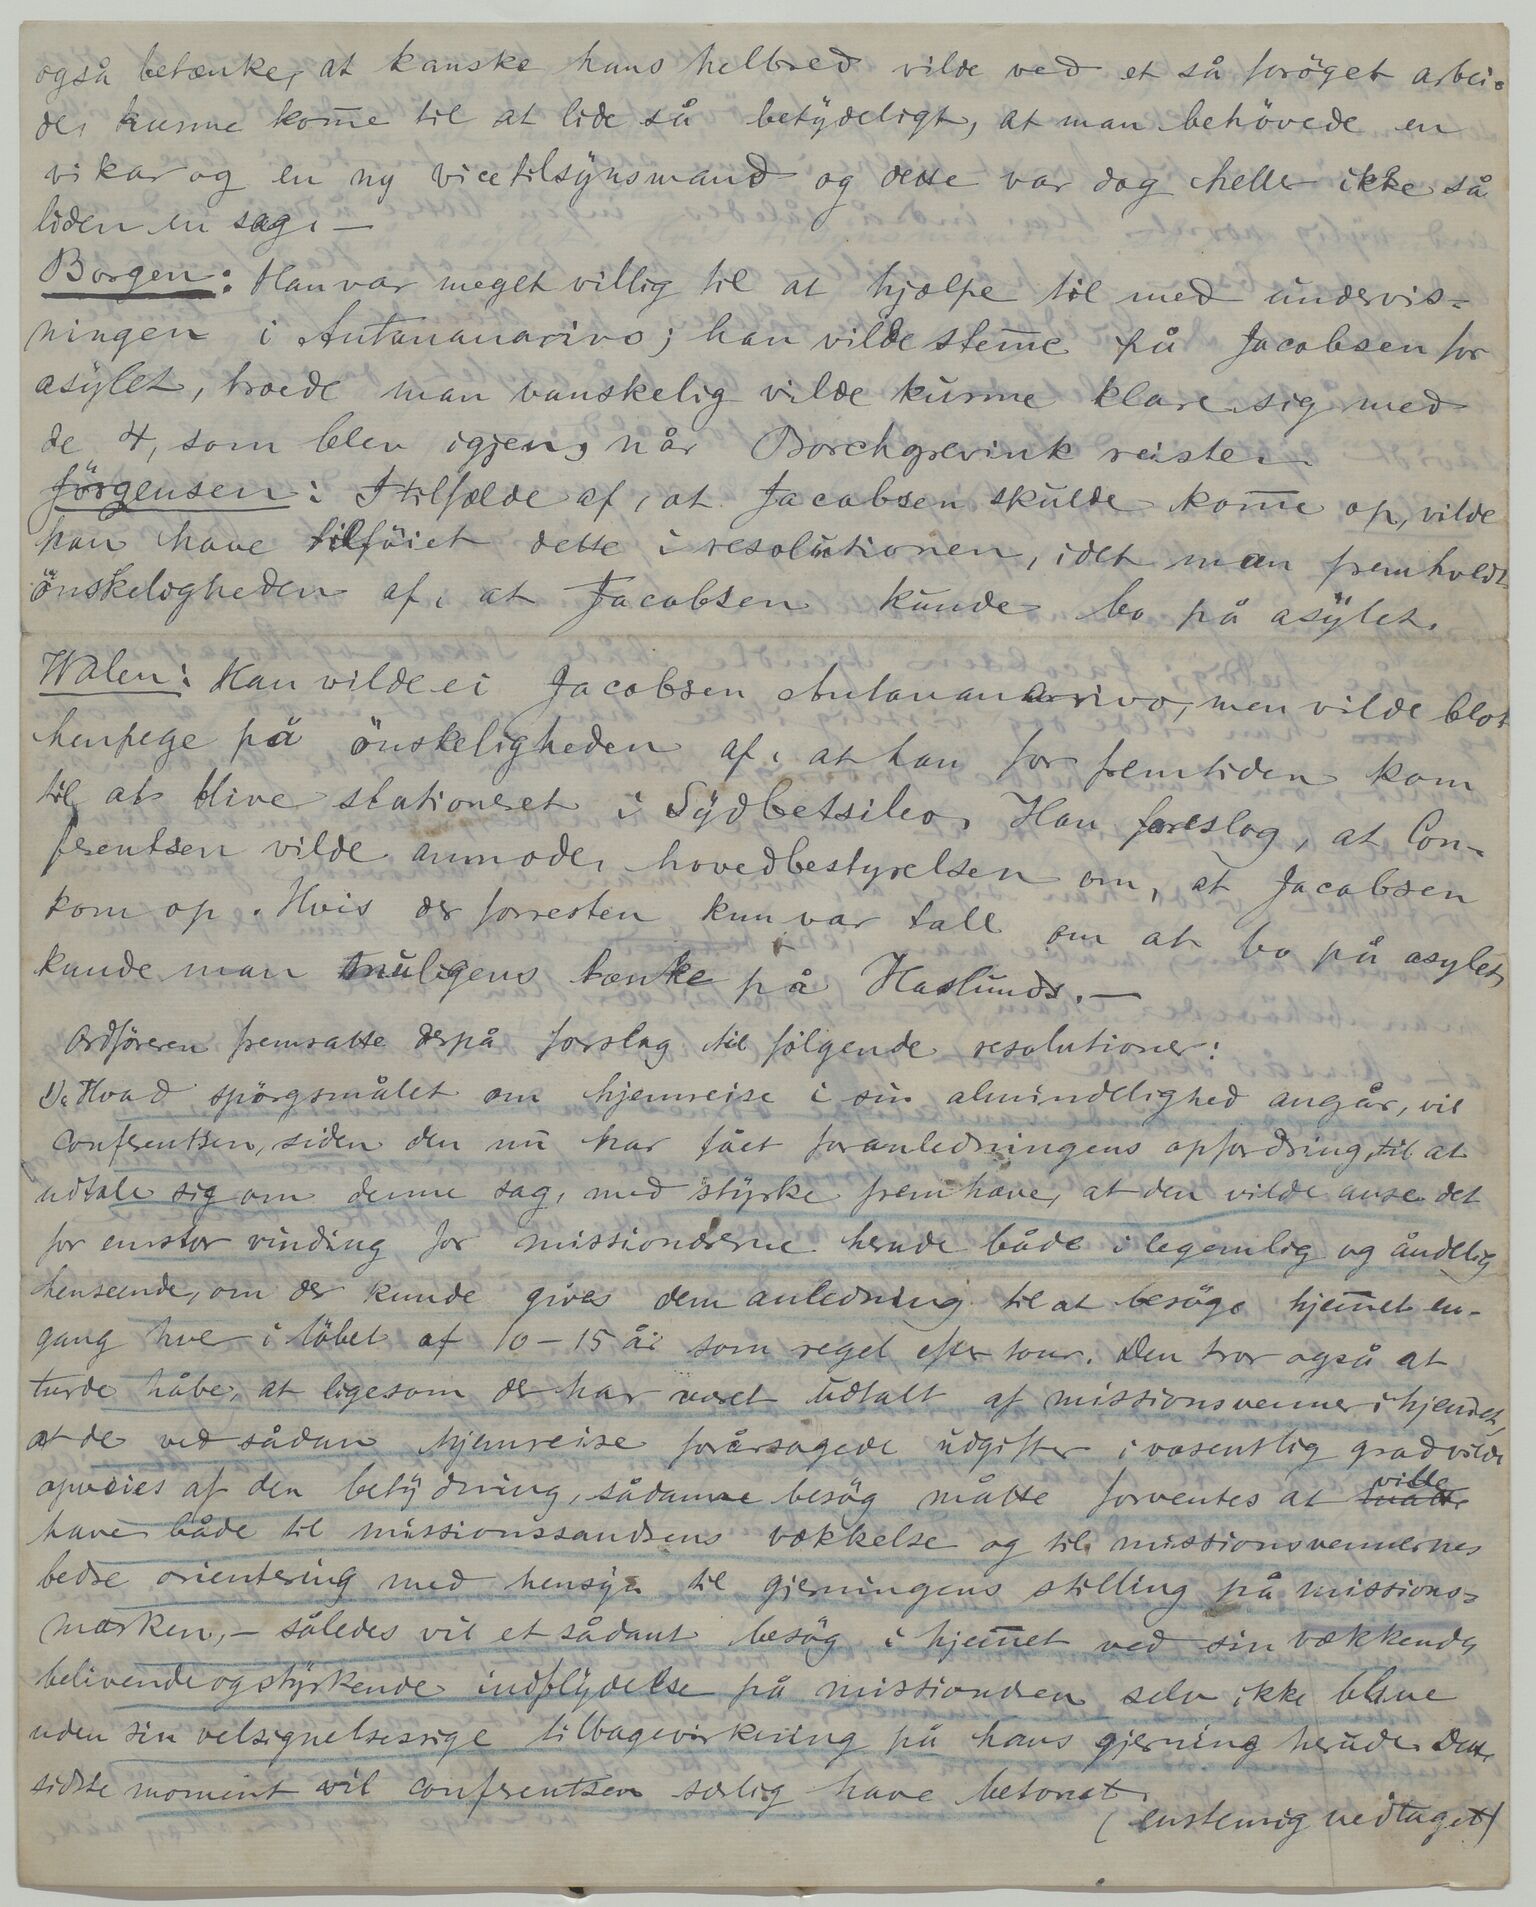 også betænke, at kanske hans helbred vilde ved et så forøget arbei-
de, kunne kom̅e til at lide så betydeligt, at man behövede en
vikar og en ny vicetilsynsmand og dette var dog heller ikke så
liden en sag. —
Borgen: Han var meget villig til at hjælpe til med undervis=
ningen i Antananarivo; han vilde stem̅e på Jacobsen for
asylet, troede man vanskelig vilde kunne klare sig med
de 4, som blev igjen, når Borchgrevink reiste.
Jörgensen: I tilfælde af, at Jacobsen skulde kom̅e op, vilde
han have tilföiet dette i resolutionen, idet man fremholdt
önskeligheden af, at Jacobsen kunde bo på asylet.
Walen: Han vilde ei Jacobsen Antananarivo, men vilde blot
henpege på önskeligheden af, at han for fremtiden kom
til at blive stationeret i Sydbetsileo. Han foreslog, at Con-
ferentsen vilde anmode hovedbestyrelsen om, at Jacobsen
kom op. Hvis der forresten kun var tale om at bo på asylet,
kunde man muligens tænke på Haslunds. —
Ordföreren fremsatte derpå forslag til fölgende resolutioner:
1). Hvad spörgsmålet om hjemreise i sin almindelighed angår, vil
Conferentsen, siden den nu har fået foranledningens opfordring, til at
udtale sig om denne sag, med styrke fremhæve, at den vilde anse det
for en stor vinding for missionærerne herude både i legemlig og åndelig
henseende, om der kunde gives dem anledning til at besöge hjem̅et en-
gang hver i löbet af 10 – 15 år som regel efter tour. Den tror også at
turde håbe, at ligesom der har været udtalt af missionsvenner i hjem̅et,
at de ved sådan hjemreise forårsagede udgifter i væsentlig grad vilde
opveies af den betydning, sådanne besög måtte forventes at måtte vilde
have både til missionssandsens vækkelse og til missionsvennernes
bedre orientering med hensyn til gjerningens stilling på missions=
marken, – således vil et sådant besög i hjem̅et ved sin vækkende,
belivende og styrkende indflydelse på missionæren selv ikke blive
uden sin velsignelsesrige tilbagevirkning på hans gjerning herude. Dette
sidste moment vil conferentsen særlig have betonet.
(enstemig vedtaget)